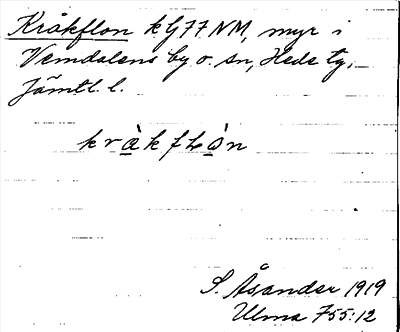 Kråkflon k G77 NM, myr i
Vemdalens by o. sn, Hede tg,
Jämtl. l.
kràkfLòn
S. Åsander 1919
Ulma 755:12